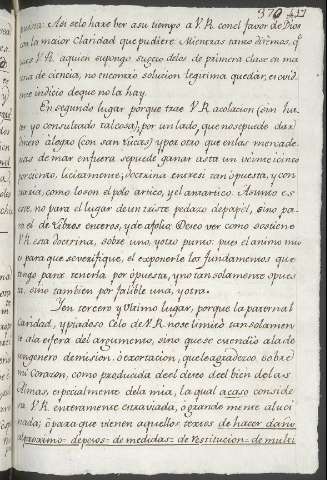 370
Assi selo haze ver asu tiempo a V.R. con el favor de Dios
con la maior claridad que pudiere. Mientras tanto dirémos, q.e
V.R. aquien supongo sugeto deles de primera clase en ma
de ciencia, no encontrò solucion legitima, quedar, es evid
indicio deque no la hay.
En segundo lugar porque trae V.R. acolacion (sin hu
yo consultado tal cosa), por un lado, que nosepuedo dar
dinero alogro (con san Lucas) y por otro que en las menude
de mar en fuera sepuede ganar asta un veinte i cinco
porciento, licitamente; doctrina entresi tan opuesta, y con
como lo son el polo artico, y el antartico. Asunto es
este, no para el lugar de un triste pedazo depapèl, sino pa
el de Libros enteros, y de afolio. Deseo ver como sostiene
V.R. esta doctrina, sobre uno, y otro punto; pues el animo mio
para que severifique, el exponerle los fundamentos que
tengo para tenerla por opuesta, y no tan solamente opues
sino tambien por falible una, y otra.
Y en tercero y Ultimo lugar, porque la paternal
Caridad, y piadoso Celo de V.R. nose limitò tan solamen
esfera del argumento, sino que se extendio alado
genero de mision, o exortacion, que le agradezco sobre
mi Corazon, como producida deel deseo deel bien delas
Almas, especialmente dela mia, la qual acaso conside
V.R. enteramente extraviada, ò grande mente aluci
nada; ò para que vienen aquellos textos de hacer daño
al proximo = de pesos = de medidas = de restitucion = de multi